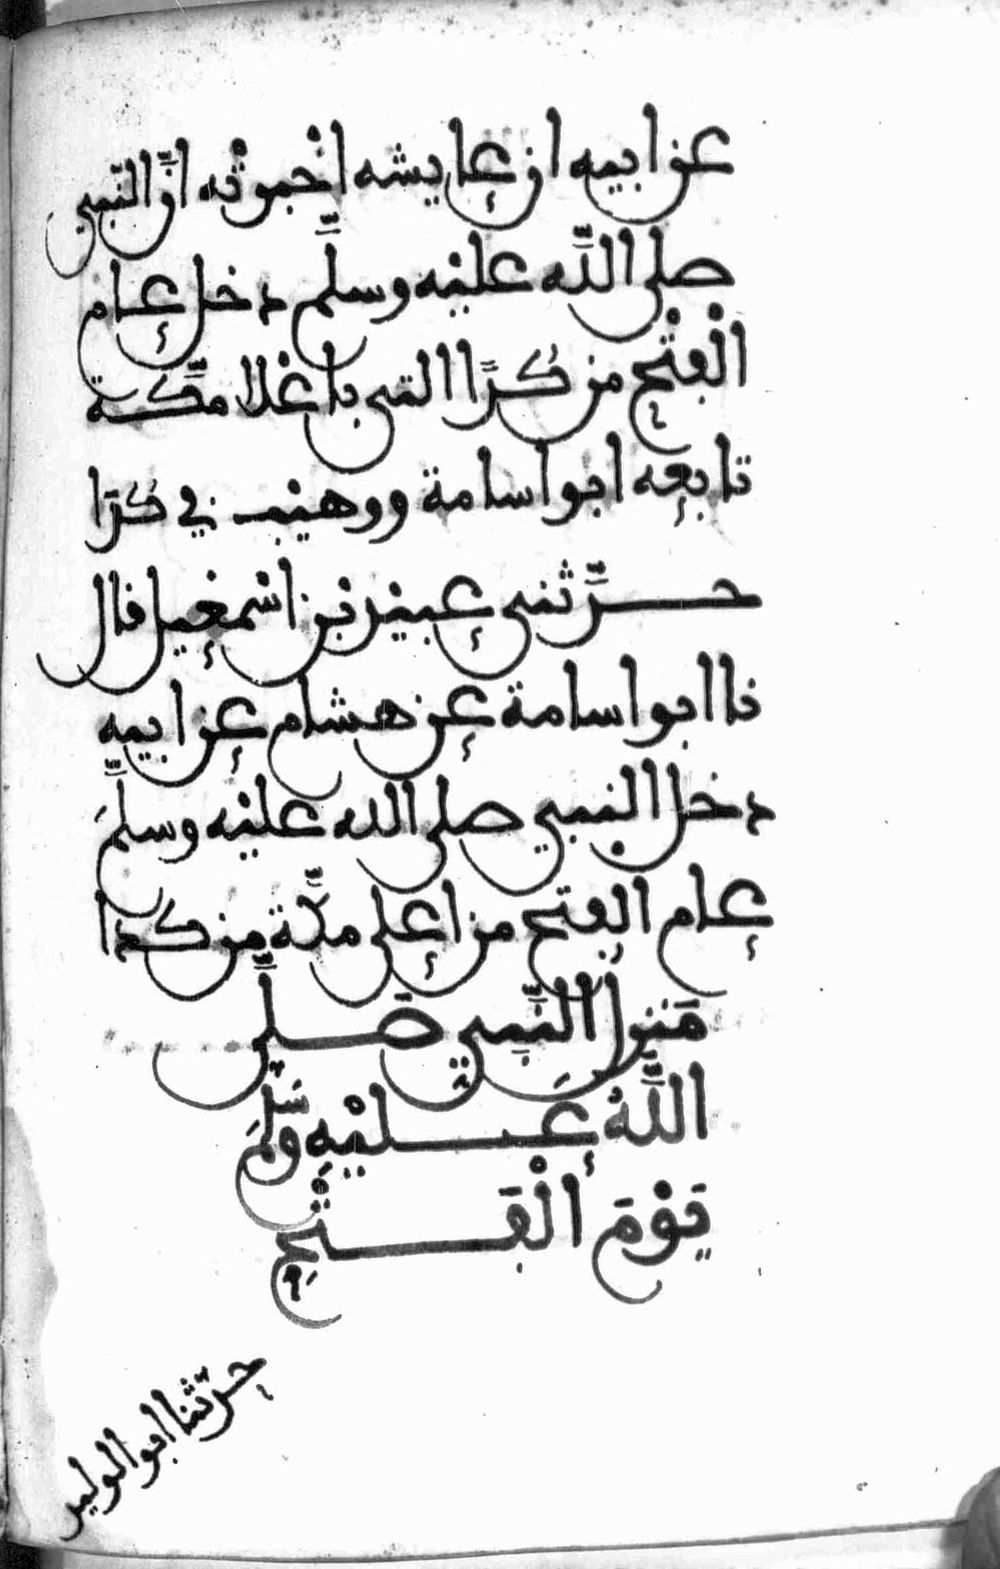 عن ابيه ان عايشه اخبرته ان النبي
صلى الله عليه وسلم دخل عام
الفتح من كدا التي باعلا مكة
تابعه ابو اسامة ووهيب في كدا
حدثني عبيد بن اسمعيل قال
نا ابو اسامة عن هشام عن ابيه
دخل النبي صلى الله عليه وسلم
عام الفتح من اعلى مكة من كدا
منزل النبي صلى
الله عليه وسلم
يوم الفتح
حدثنا ابو الوليد